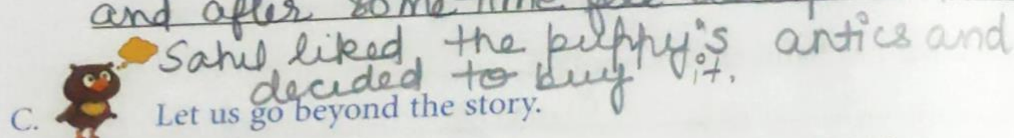 and after some time
Sahil liked the puppy's antics and
decided to buy it.
C. Let us go beyond the story.